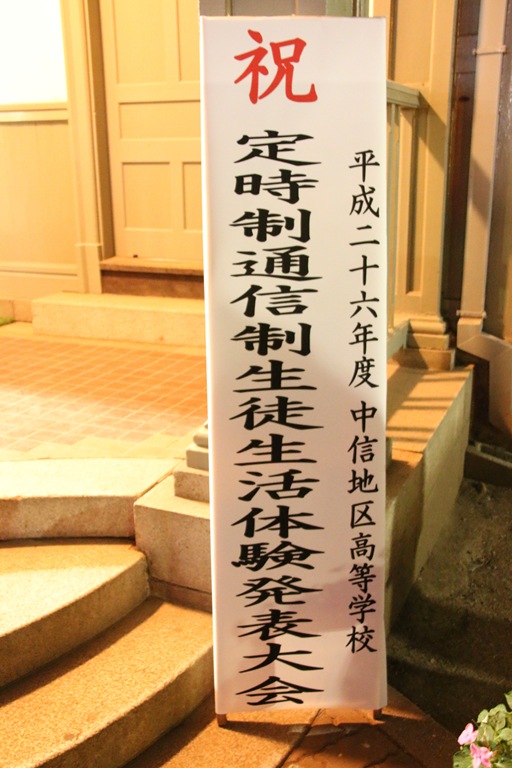 祝
平成二十六年度 中信地区高等学校
定時制通信制生徒生活体験発表大会